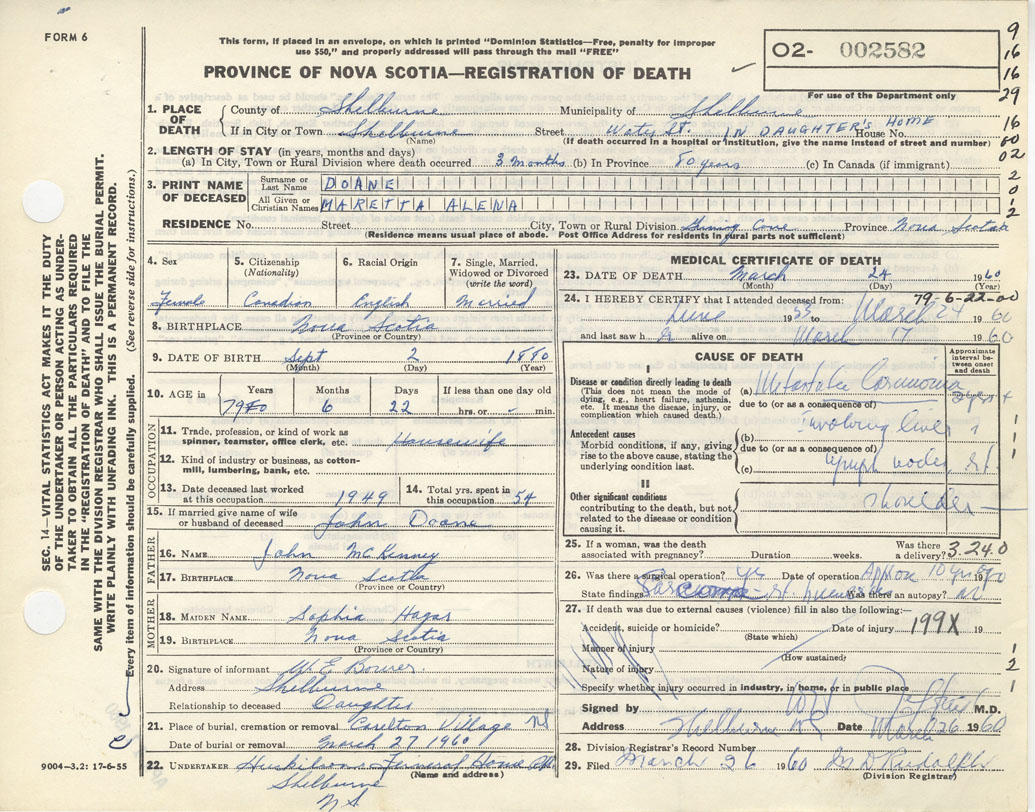 FORM 6
This form, if placed in an envelope, on which is printed "Dominion Statistics—Free, penalty for improper
use $50," and properly addressed will pass through the mail "FREE"
PROVINCE OF NOVA SCOTIA—REGISTRATION OF DEATH
02- 002582
For use of the Department only
9
16
16
29
16
00
02
2
0
1
2
SEC. 14—VITAL STATISTICS ACT MAKES IT THE DUTY
OF THE UNDERTAKER OR PERSON ACTING AS UNDER-
TAKER TO OBTAIN ALL THE PARTICULARS REQUIRED
IN THE "REGISTRATION OF DEATH" AND TO FILE THE
SAME WITH THE DIVISION REGISTRAR WHO SHALL ISSUE THE BURIAL PERMIT.
WRITE PLAINLY WITH UNFADING INK. THIS IS A PERMANENT RECORD.
Every item of information should be carefully supplied. (See reverse side for instructions.)
1. PLACE OF DEATH
County of Shelburne Municipality of Shelburne
If in City or Town Shelburne Street Water St. IN DAUGHTER'S HOME House No.
(Name) (If death occurred in a hospital or institution, give the name instead of street and number)
2. LENGTH OF STAY (in years, months and days)
(a) In City, Town or Rural Division where death occurred 3 months (b) In Province 80 years (c) In Canada (if immigrant)
3. PRINT NAME OF DECEASED
Surname or Last Name DOANE
All Given or Christian Names MARETTA ALENA
RESIDENCE No. Street City, Town or Rural Division Gunning Cove Province Nova Scotia
(Residence means usual place of abode. Post Office Address for residents in rural parts not sufficient)
4. Sex
Female
5. Citizenship
(Nationality)
Canadian
6. Racial Origin
English
7. Single, Married, Widowed or Divorced
(write the word)
Married
8. BIRTHPLACE Nova Scotia
(Province or Country)
9. DATE OF BIRTH Sept 2 1880
(Month) (Day) (Year)
10. AGE in
Years Months Days If less than one day old
79 6 22 hrs. or - min.
OCCUPATION
11. Trade, profession, or kind of work as
spinner, teamster, office clerk, etc. Housewife
12. Kind of industry or business, as cotton-
mill, lumbering, bank, etc.
13. Date deceased last worked
at this occupation 1949
14. Total yrs. spent in
this occupation 54
15. If married give name of wife
or husband of deceased John Doane
FATHER
16. NAME John McKenney
17. BIRTHPLACE Nova Scotia
(Province or Country)
MOTHER
18. MAIDEN NAME Sophia Hagar
19. BIRTHPLACE Nova Scotia
(Province or Country)
20. Signature of informant W. E. Bower
Address Shelburne
Relationship to deceased Daughter
21. Place of burial, cremation or removal Carleton Village NS
Date of burial or removal March 27 1960
22. UNDERTAKER Huskilson Funeral Home
(Name and address)
Shelburne
N S
9004—3.2: 17-6-55
MEDICAL CERTIFICATE OF DEATH
23. DATE OF DEATH March 24 1960
(Month) (Day) (Year)
79-6-22-00
24. I HEREBY CERTIFY that I attended deceased from:
June 1953 to March 24 1960
and last saw h er alive on March 17 1960
CAUSE OF DEATH
Approximate interval between onset and death
I
Disease or condition directly leading to death
(This does not mean the mode of
dying, e.g., heart failure, asthenia,
etc. It means the disease, injury, or
complication which caused death.)
(a) Metastatic Carcinoma
due to (or as a consequence of)
involving liver
Antecedent causes
Morbid conditions, if any, giving
rise to the above cause, stating the
underlying condition last.
(b)
due to (or as a consequence of)
(c) lymph nodes rt.
II
Other significant conditions
contributing to the death, but not
related to the disease or condition
causing it.
shoulder
1
1
1
25. If a woman, was the death
associated with pregnancy? Duration weeks. Was there a delivery? 3.24.0
26. Was there a surgical operation? yes Date of operation Approx 10 yrs ago 19
State findings Was there an autopsy? no
27. If death was due to external causes (violence) fill in also the following:—
Accident, suicide or homicide? Date of injury 199X 19
(State which)
Manner of injury
(How sustained)
Nature of injury
Specify whether injury occurred in industry, in home, or in public place
1
2
1
Signed by M.D.
Address Shelburne NS Date March 26 1960
28. Division Registrar's Record Number
29. Filed March 26 1960 M D Rudolph
(Division Registrar)